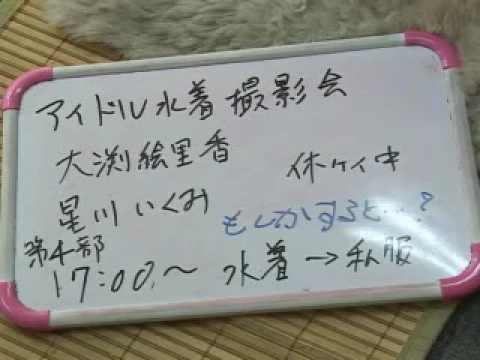 アイドル水着撮影会
大渕絵里香
休ケイ中
星川いくみ
もしかすると…?
第4部
17:00〜 水着→私服